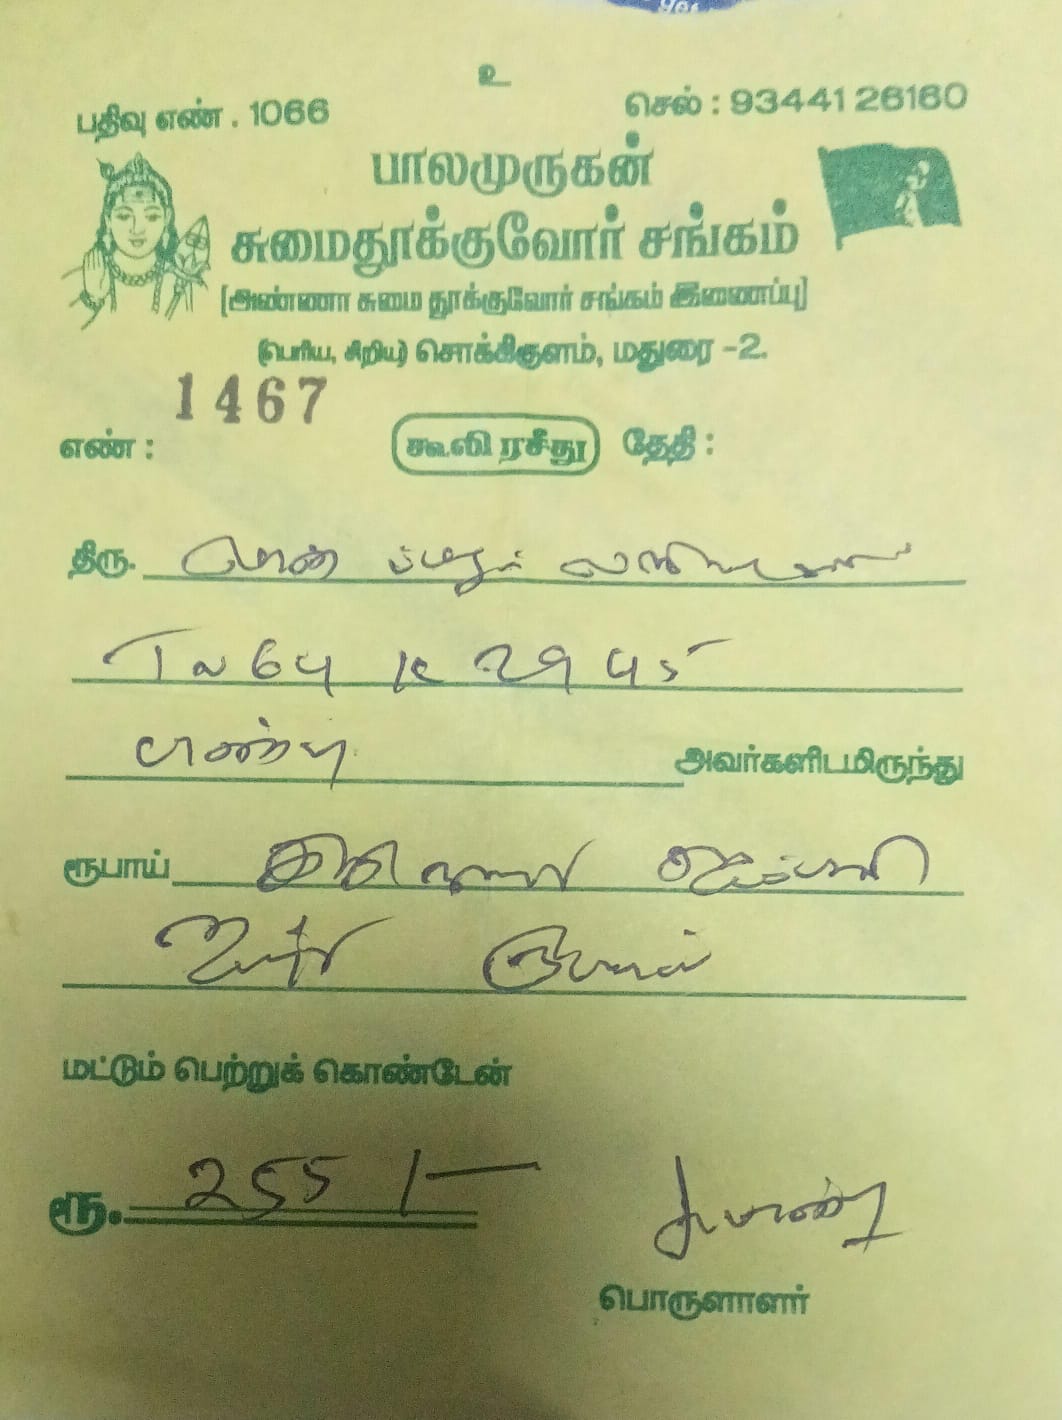 உ
பதிவு எண் . 1066 செல் : 93441 26160
பாலமுருகன்
சுமைதூக்குவோர் சங்கம்
(அண்ணா சுமை தூக்குவோர் சங்கம் இணைப்பு)
(பெரிய, சிறிய) சொக்கிகுளம், மதுரை -2.
1467
எண் : கூலி ரசீது தேதி :
திரு.
TN 64 K 2945
அவர்களிடமிருந்து
ரூபாய்
ரூபாய்
மட்டும் பெற்றுக் கொண்டேன்
ரூ. 255/-
பொருளாளர்